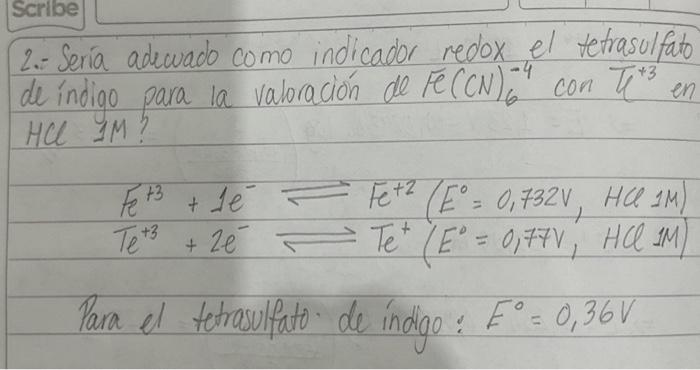 Scribe
2.- Sería adecuado como indicador redox el tetrasulfato
de índigo para la valoración de Fe(CN)₆⁻⁴ con Tl⁺³ en
HCl 1M?
Fe⁺³ + 1e⁻ ⇌ Fe⁺² (E° = 0,732V, HCl 1M)
Te⁺³ + 2e⁻ ⇌ Te⁺ (E° = 0,77V, HCl 1M)
Para el tetrasulfato de índigo: E° = 0,36V